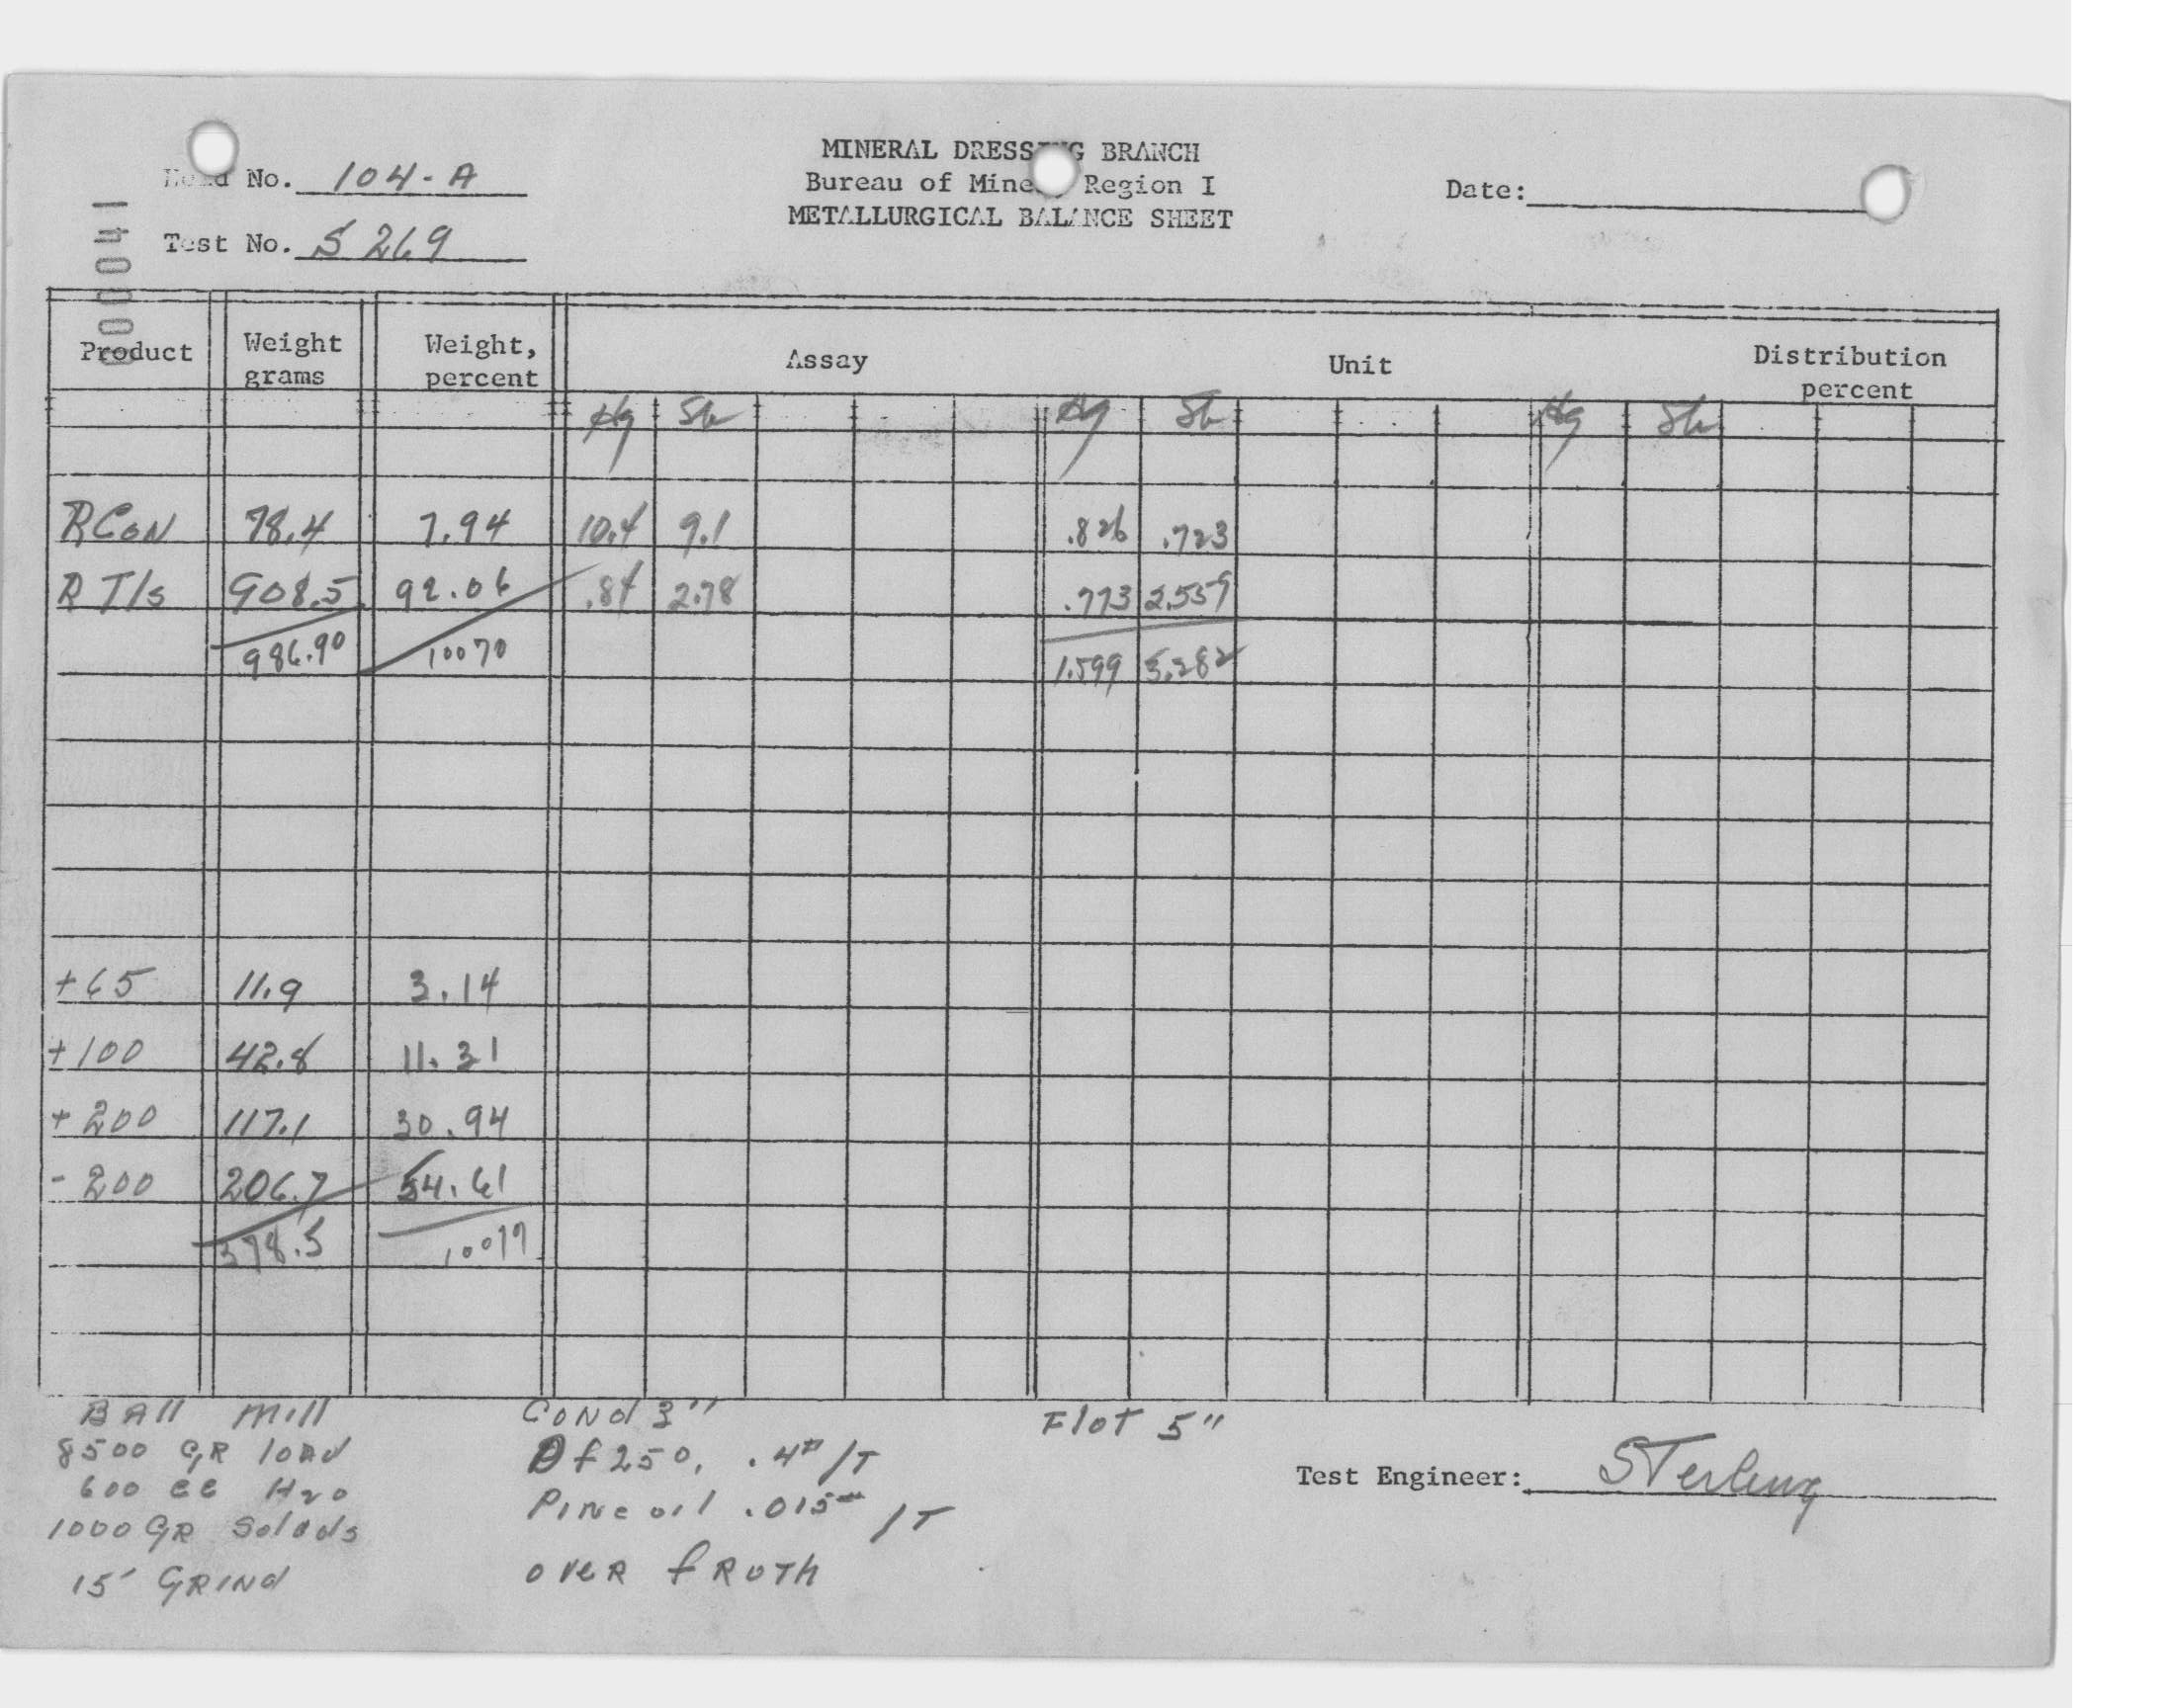 MINERAL DRESSING BRANCH
Head No. 104-A
Bureau of Mines Region I
Date:
METALLURGICAL BALANCE SHEET
Test No. S 269
000041
Product Weight grams Weight, percent Assay Unit Distribution percent
Hg Sb Hg Sb Hg Sb
R Con 78.4 7.94 10.4 9.1 .826 .723
R Tls 908.5 92.06 .84 2.78 .773 2.559
986.90 1.599 3.282
+65 11.9 3.14
+100 42.8 11.31
+200 117.1 30.94
-200 206.7 54.61
378.5
BAll Mill
8500 GR lOAd
600 CC H20
1000 GR Solids
15' GRINd
CoNd 3"
Df 250, .4# /T
PINe oil .015# /T
oveR fROTh
Flot 5"
Test Engineer: STerling